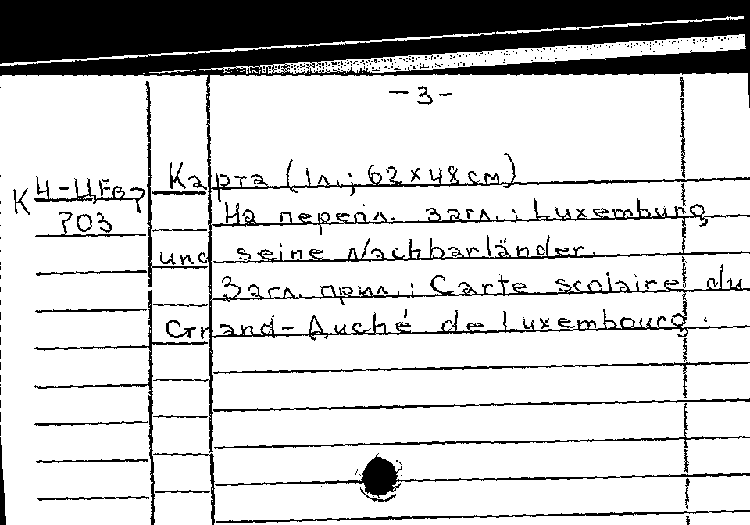 -3-
Карта (1л.; 62×48см)
На перепл. загл.: Luxemburg
und seine Nachbarländer.
Загл. прил.: Carte scolaire du
Grand-Duché de Luxembourg.
К
703